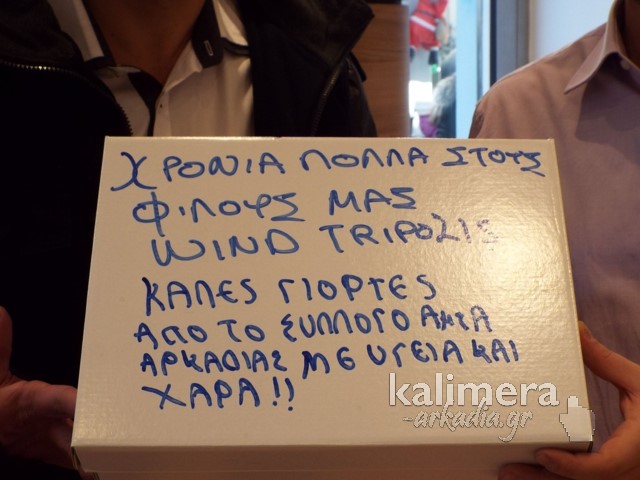 ΧΡΟΝΙΑ ΠΟΛΛΑ ΣΤΟΥΣ
ΦΙΛΟΥΣ ΜΑΣ
WIND TRIPOLIS
ΚΑΛΕΣ ΓΙΟΡΤΕΣ
ΑΠΟ ΤΟ ΣΥΛΛΟΓΟ
ΑΡΚΑΔΙΑΣ ΜΕ ΥΓΕΙΑ ΚΑΙ
ΧΑΡΑ!!
kalimera
-arkadia.gr